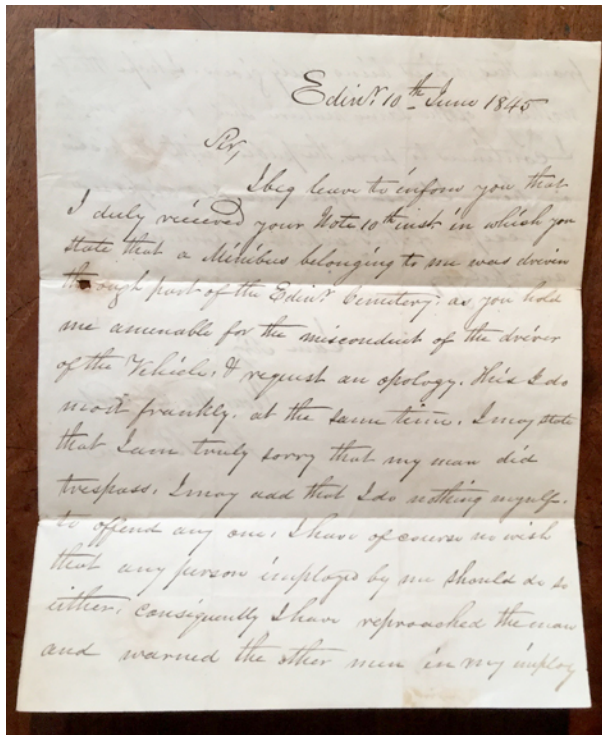 Edinr. 10th June 1845
Sir,
I beg leave to inform you that
I duly received your Note 10th inst in which you
state that a Minibus belonging to me was driven
through part of the Edinr. Cemetery: as you hold
me amenable for the misconduct of the driver
of the Vehicle, & request an apology. this I do
most frankly. at the same time, I may state
that I am truly sorry that my man did
trespass, I may add that I do nothing myself.
to offend any one, I have of course no wish
that any person employed by me should do so
either, Consequently I have reproached the man
and warned the other men in my employ